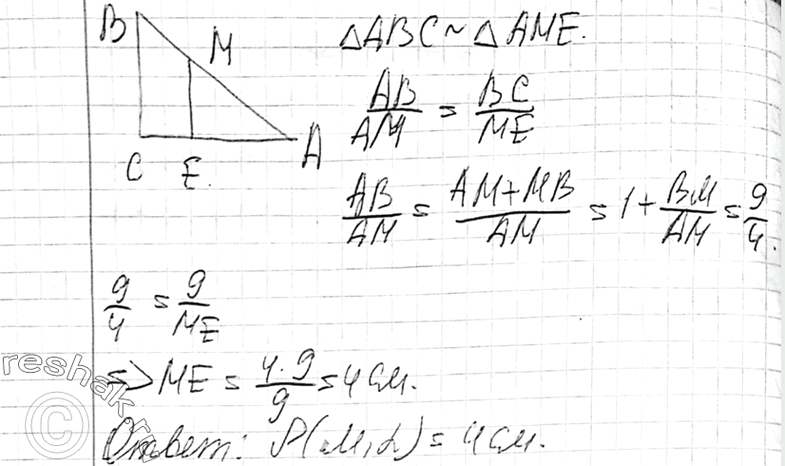 B
M
C
E.
A
△ABC ~ △AME.
AB/AM = BC/ME
AB/AM = AM+MB/AM = 1 + BM/AM = 9/4.
9/4 = 9/ME
=> ME = 4·9/9 = 4 см.
Ответ: P(M, α) = 4 см.
reshak.ru
©